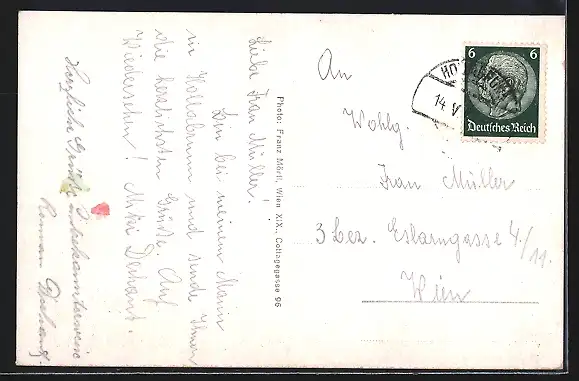 Liebe Frau Müller!
Bin bei meinem Mann
in Hollabrunn und sende Ihnen
die herzlichsten Grüße. Auf
Wiedersehen! Mitzi
Herzliche Grüße unbekannterweise
Roman
Photo: Franz Mörtl, Wien XIX., Collagegasse 96
An
Wohlg.
Frau Müller
3 Bez. Eslarngasse 4/11.
Wien
14 V
6 6
Deutsches Reich